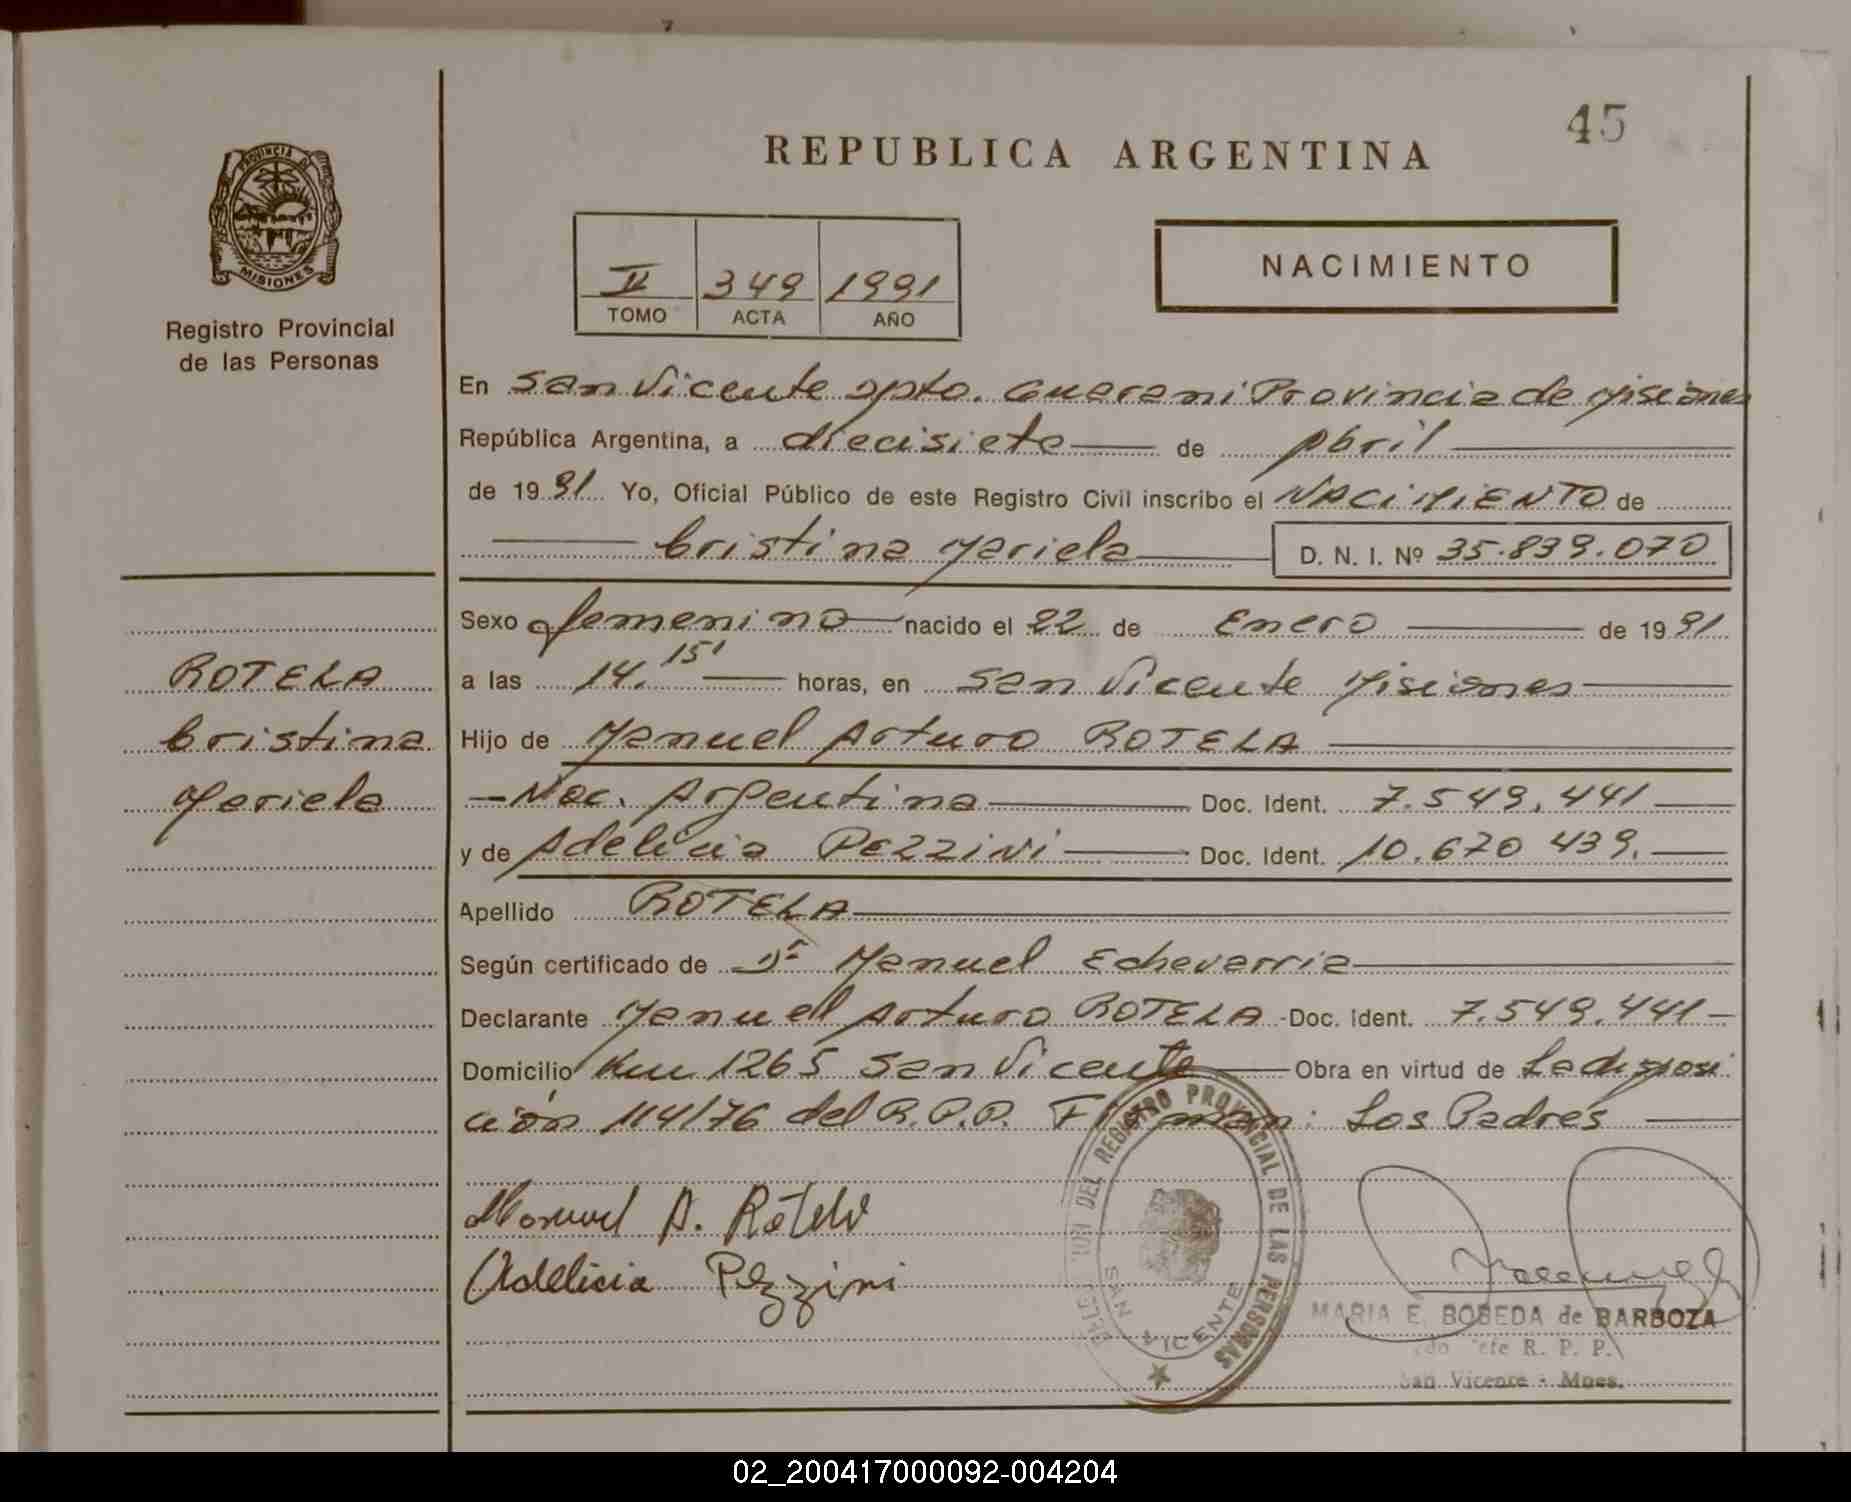 45
REPUBLICA ARGENTINA
PROVINCIA D
MISIONES
Registro Provincial
de las Personas
II 349 1991
TOMO ACTA AÑO
NACIMIENTO
En San Vicente Dpto. Guarani Provincia de Misiones
República Argentina, a diecisiete de Abril
de 1991 Yo, Oficial Público de este Registro Civil inscribo el NACIMIENTO de
Cristina Mariela D. N. I. Nº 35.839.070
Sexo femenino nacido el 22 de Enero de 1991
a las 14.15' horas, en San Vicente Misiones
Hijo de Manuel Arturo ROTELA
Nac. Argentina Doc. Ident. 7.549.441
y de Adelicia PEZZINI Doc. Ident. 10.670 439.
Apellido ROTELA
Según certificado de Dr Manuel Echeverria
Declarante Manuel Arturo ROTELA Doc. Ident. 7.549.441
Domicilio Km 1265 San Vicente Obra en virtud de La disposi
ción 114/76 del R.P.P. Firman: Los Padres
ROTELA
Cristina
Mariela
Manuel A. Rotela
Adelicia Pezzini
DEL REGISTRO PROVINCIAL DE LAS PERSONAS
SAN VICENTE
MARIA E. BOBEDA de BARBOZA
R. P. P.
San Vicente - Mnes.
02_200417000092-004204